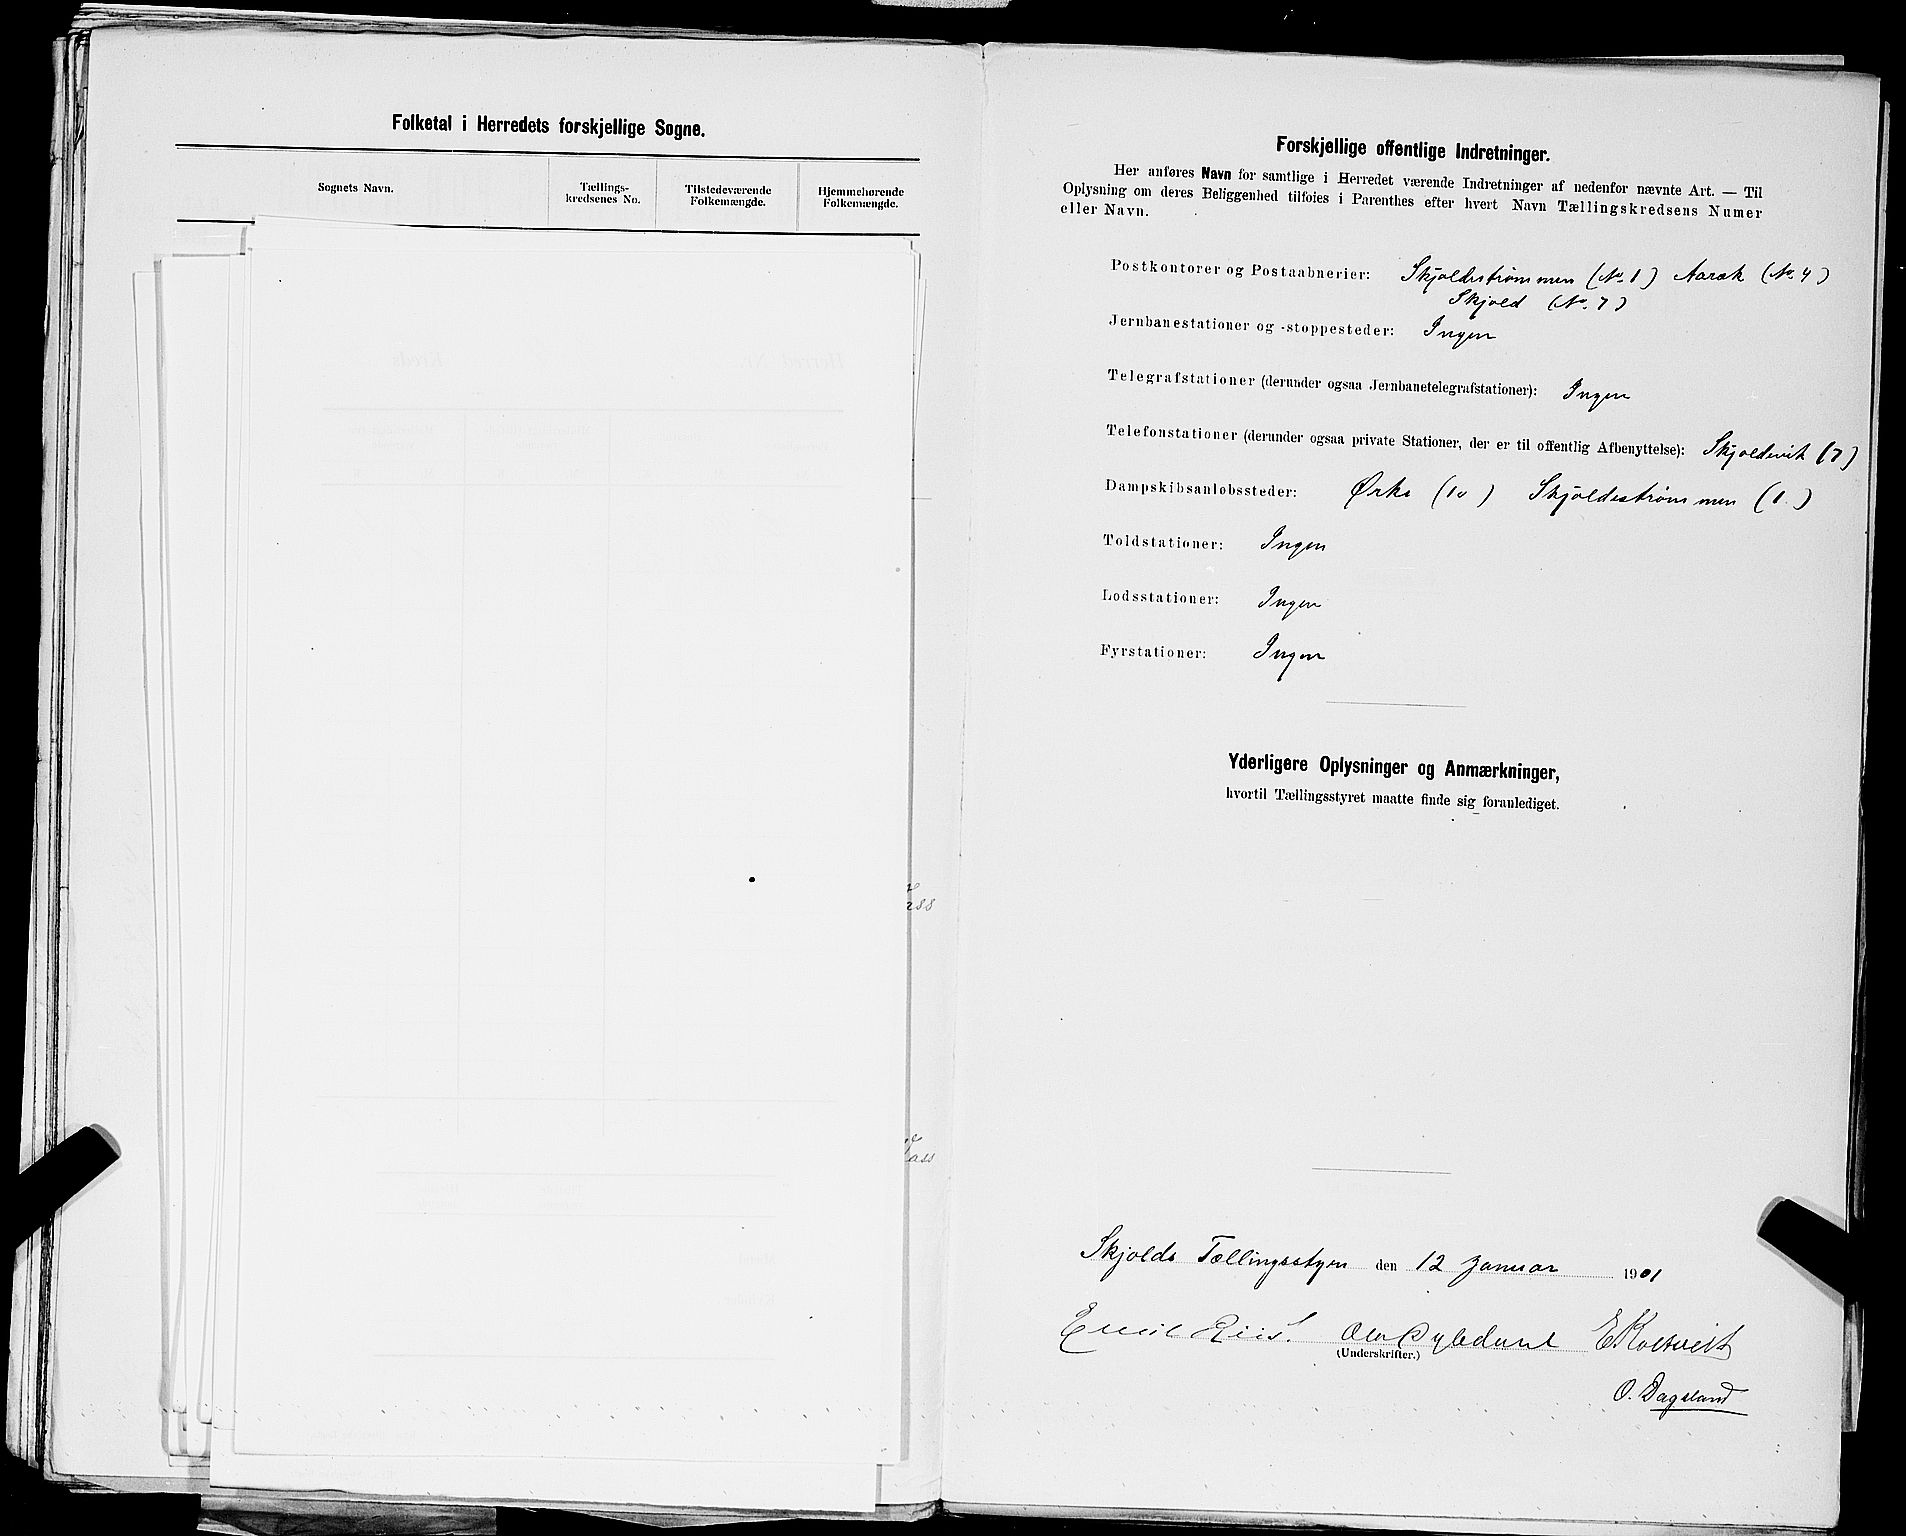 Folketal i Herredets forskjellige Sogne.
Sognets Navn.
Tællings-
kredsenes No.
Tilstedeværende
Folkemængde.
Hjemmehørende
Folkemængde.
Forskjellige offentlige Indretninger.
Her anføres Navn for samtlige i Herredet værende Indretninger af nedenfor nævnte Art. — Til
Oplysning om deres Beliggenhed tilføies i Parenthes efter hvert Navn Tællingskredsens Numer
eller Navn.
Postkontorer og Postaabnerier: Skjoldestrømmen (No. 1) Aarak (No. 4)
Skjold (No. 7)
Jernbanestationer og -stoppesteder: Ingen
Telegrafstationer (derunder ogsaa Jernbanetelegrafstationer): Ingen
Telefonstationer (derunder ogsaa private Stationer, der er til offentlig Afbenyttelse): Skjoldevik (7)
Dampskibsanløbssteder: Ørke (10) Skjoldestrømmen (1.)
Toldstationer: Ingen
Lodsstationer: Ingen
Fyrstationer: Ingen
Yderligere Oplysninger og Anmærkninger,
hvortil Tællingsstyret maatte finde sig foranlediget.
Skjolds Tællingsstyre den 12 Januar 1901
Emil Riis. Ola
(Underskrifter.)
O. Dagsland